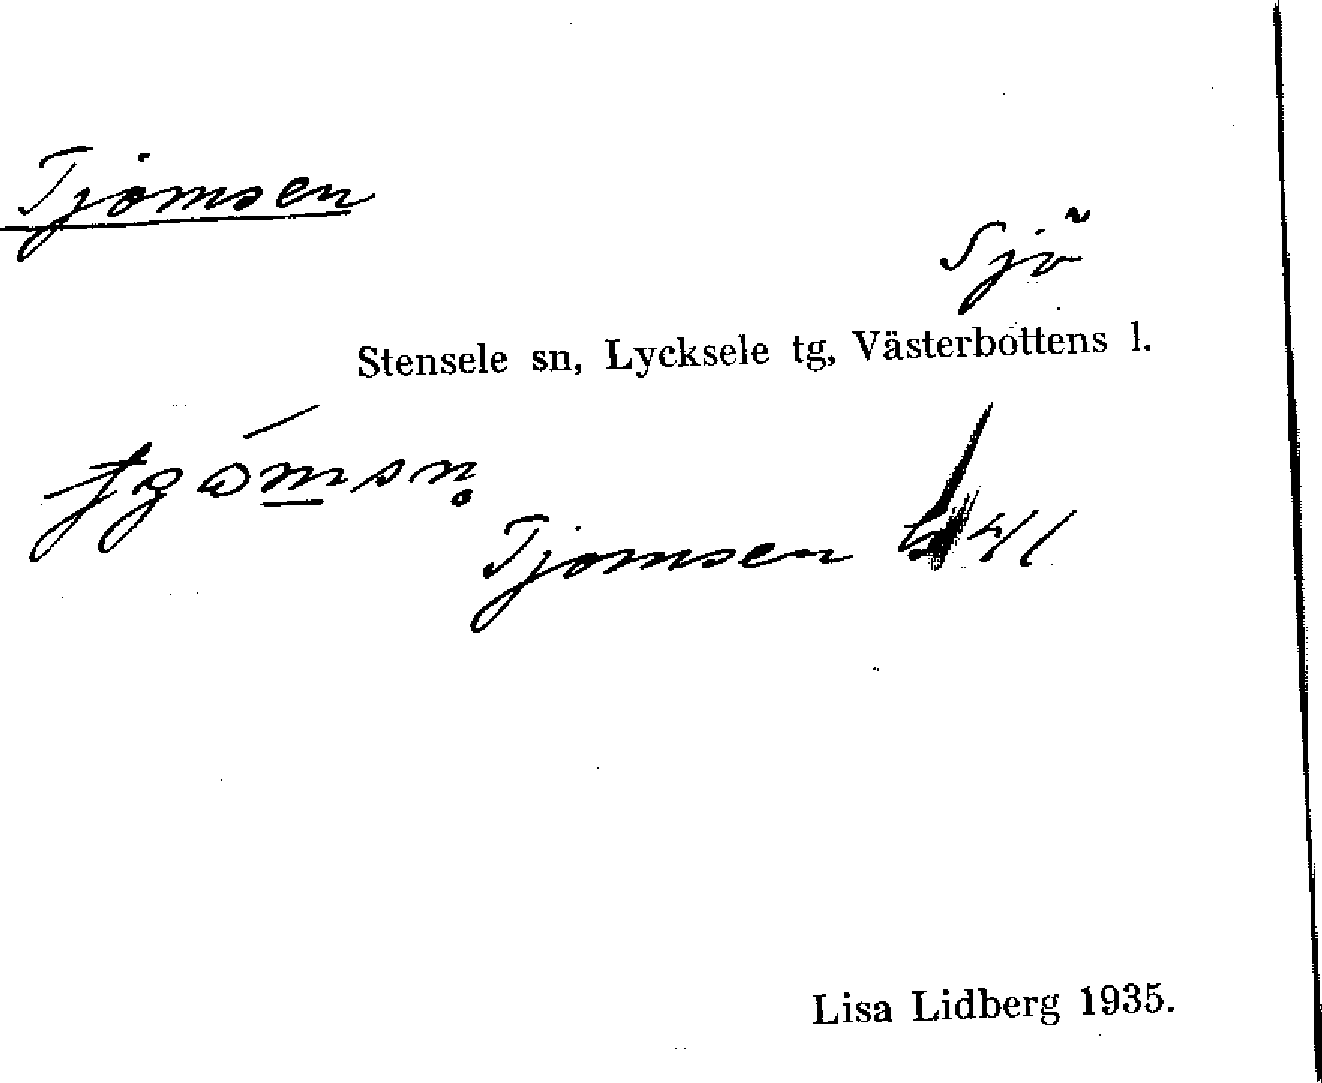 Tjomsen
Sjö
Stensele sn, Lycksele tg, Västerbottens l.
Tjomsen
Lisa Lidberg 1935.